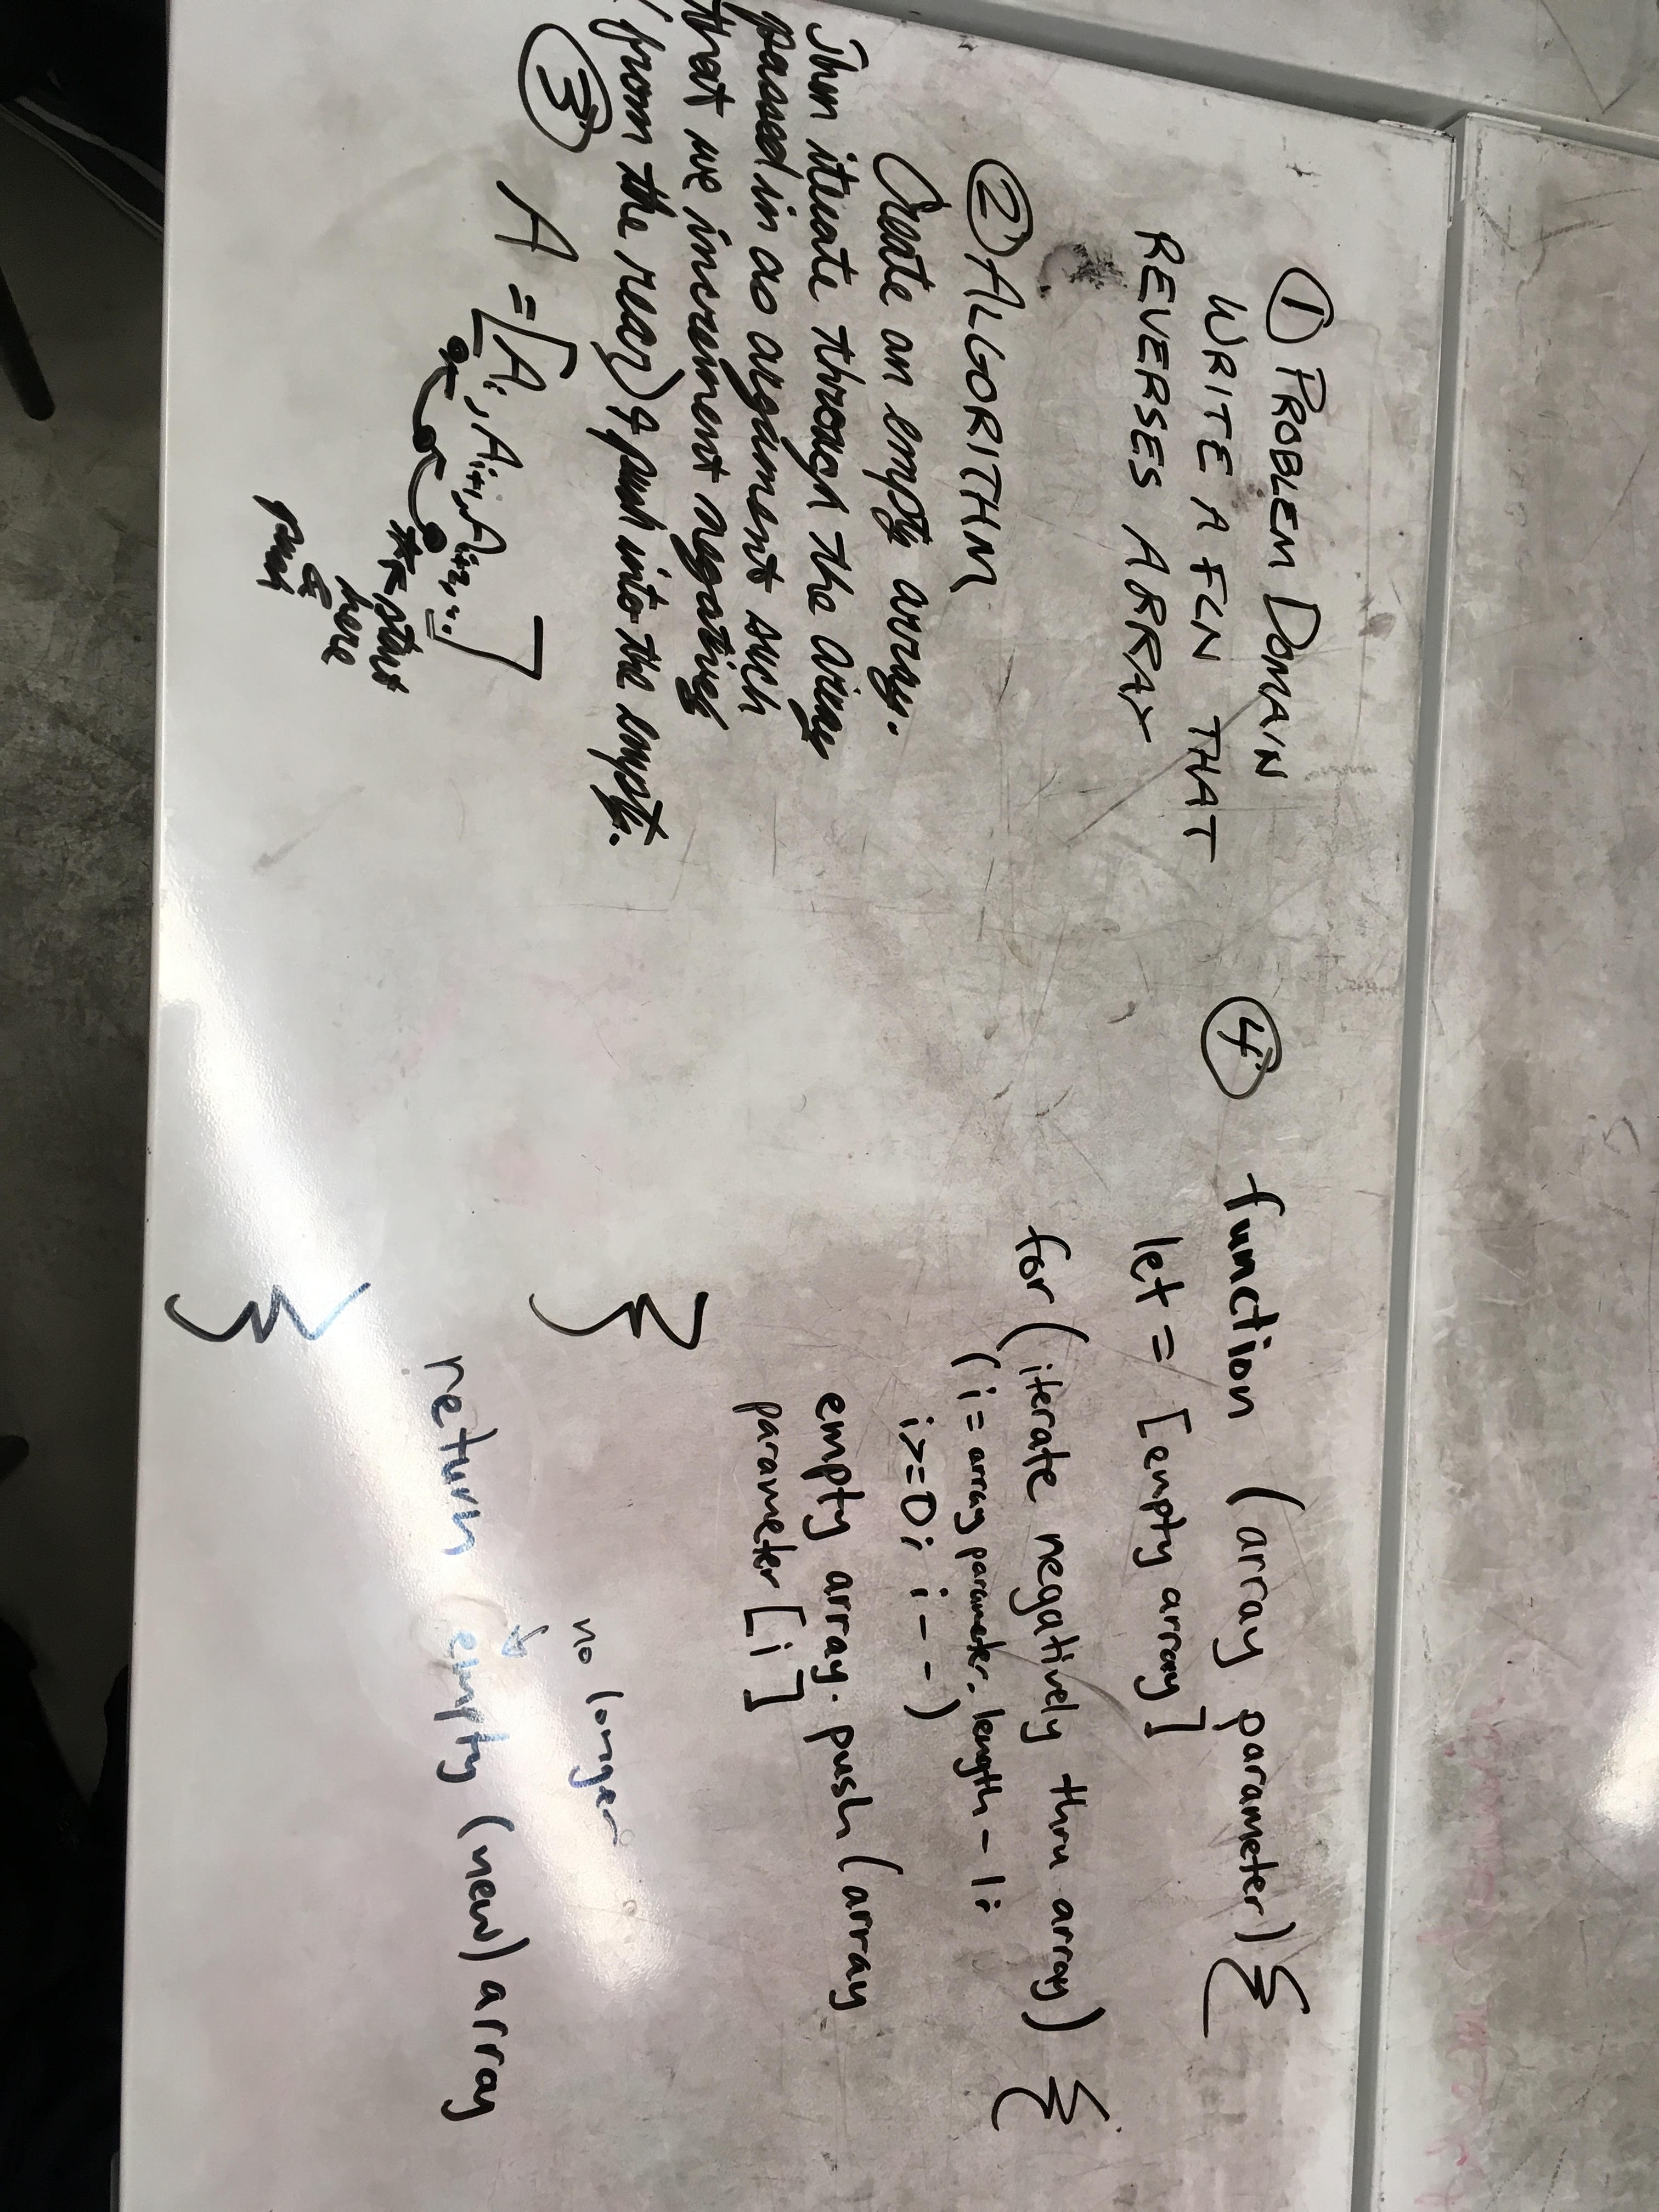 ① PROBLEM DOMAIN
WRITE A FCN THAT
REVERSES ARRAY
② ALGORITHM
Create an empty array.
Then iterate through the array
passed in as argument such
that we increment negatively
(from the rear) & push into the empty.
③
A = [Ai, Ai+1, Ai+2, ...]
start
here
&
push
④ function (array parameter) {
let = [empty array]
for (iterate negatively thru array) {
(i = array parameter.length - 1;
i>=0; i--)
empty array.push(array
parameter[i]
}
no longer
return empty (new) array
}